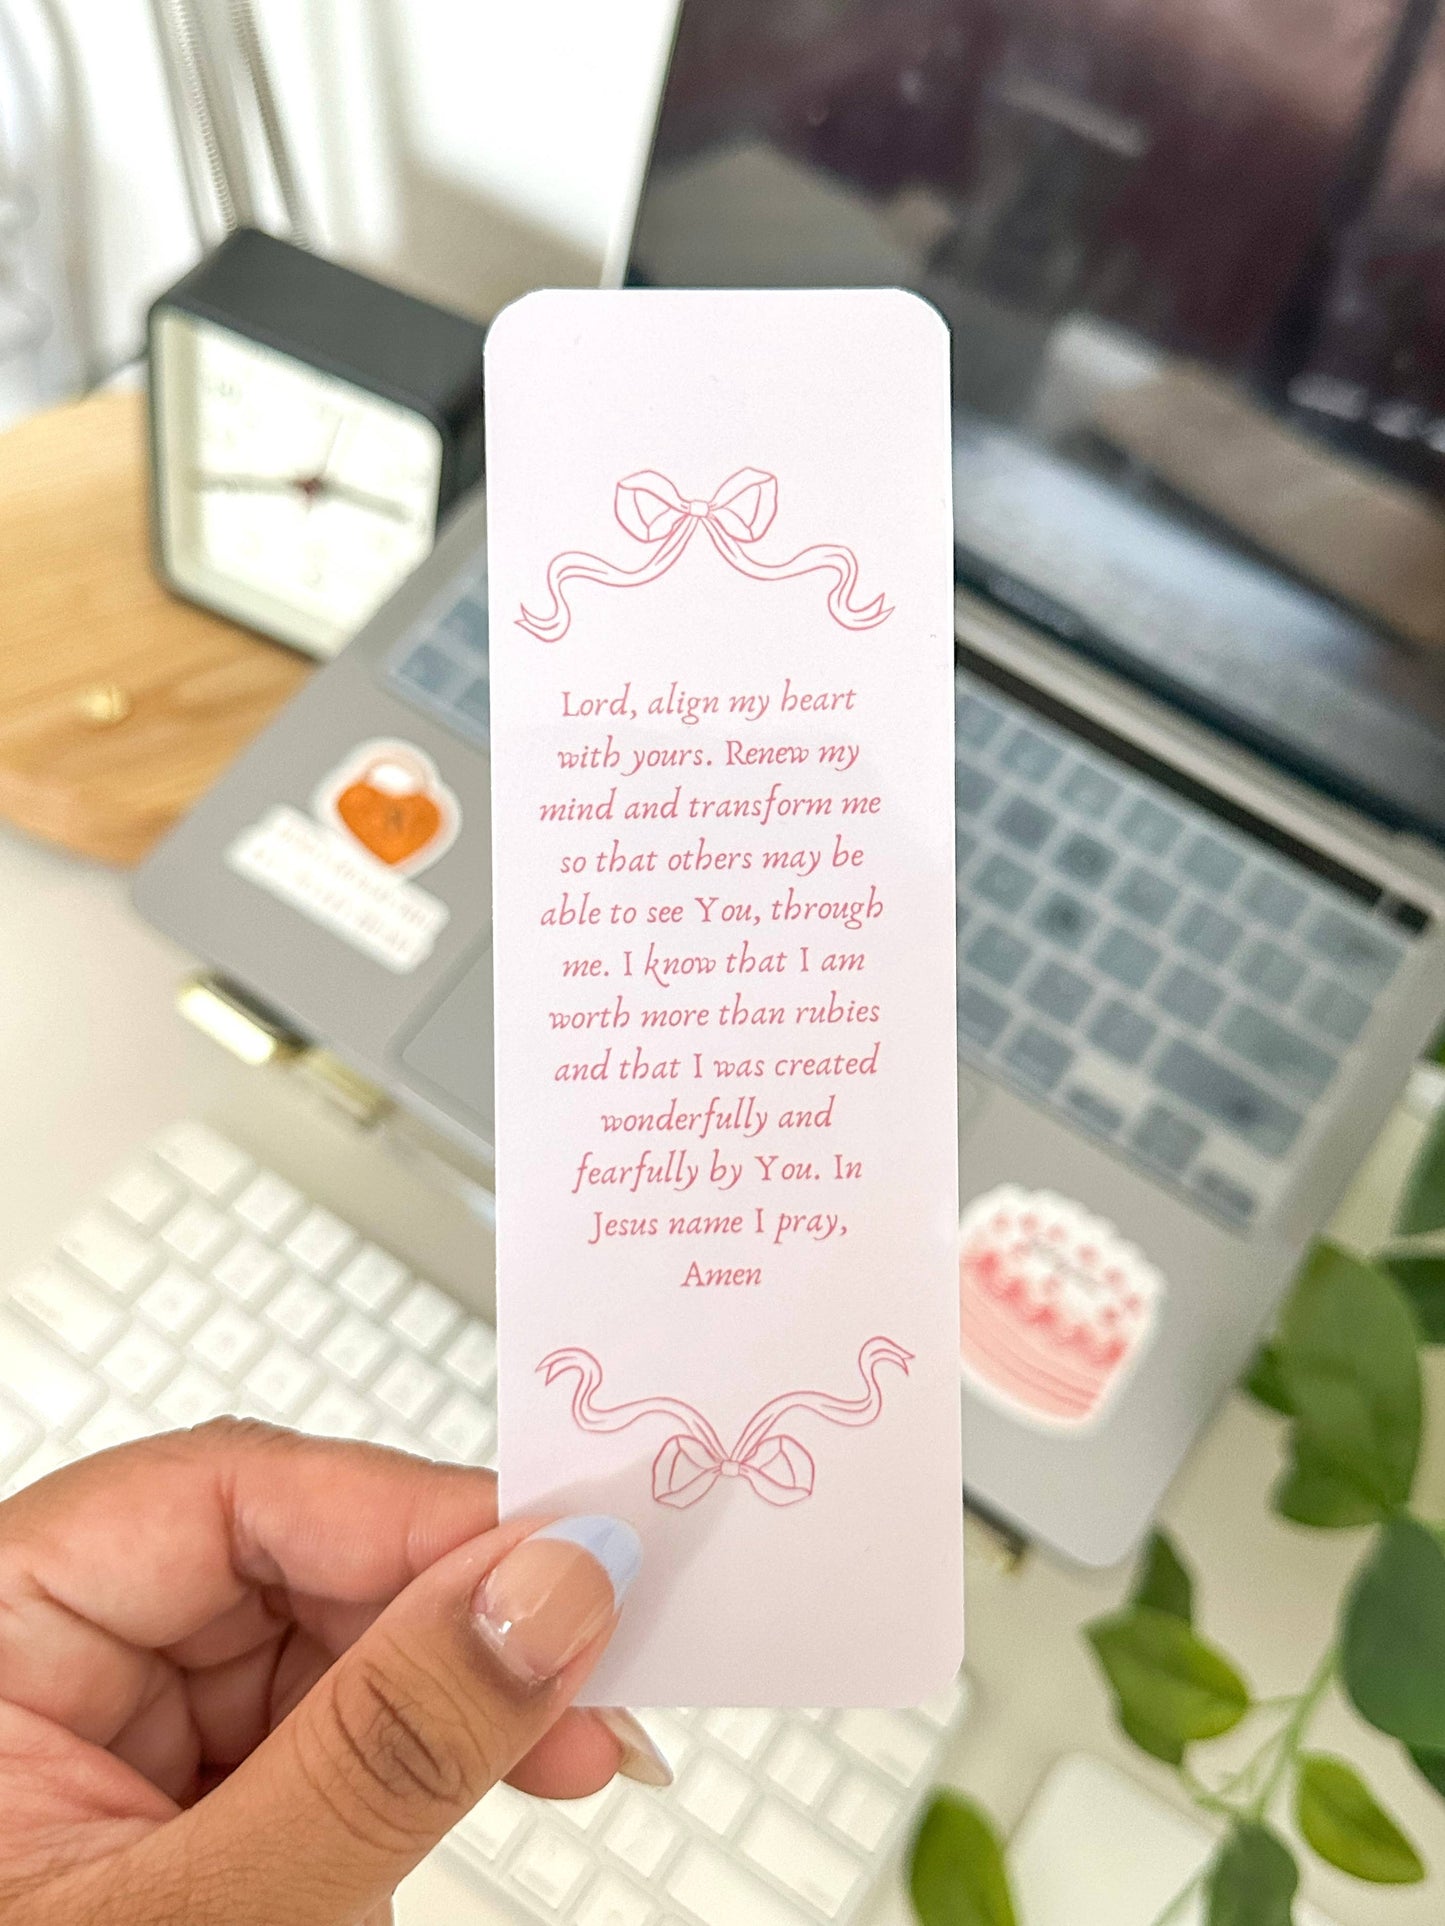 Lord, align my heart
with yours. Renew my
mind and transform me
so that others may be
able to see You, through
me. I know that I am
worth more than rubies
and that I was created
wonderfully and
fearfully by You. In
Jesus name I pray,
Amen